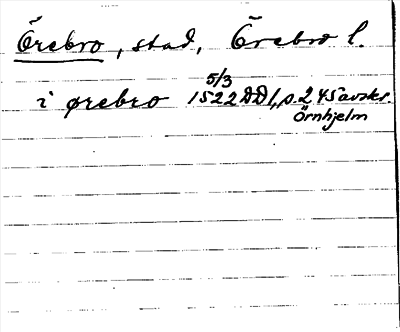 Örebro, stad, Örebro l.
i ørebro 5/3 1522 DD1, s. 245 avskr.
Örnhjelm